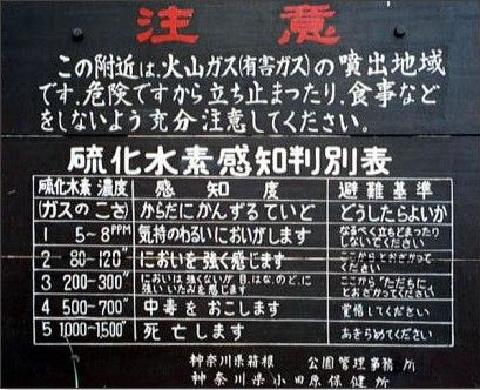 注意
この附近は、火山ガス(有害ガス)の噴出地域
です。危険ですから立ち止まったり、食事など
をしないよう充分注意してください。
硫化水素感知判別表
硫化水素濃度 感知度 避難基準
(ガスのこさ) からだにかんずるていど どうしたらよいか
1 5~8PPM 気持のわるいにおいがします なるべく立ちどまったり
しないでください
2 80-120〃 においを強く感じます ここからとおざかって
ください
3 200-300〃 においは強くないが、目、はな、のど、に
強いいたみを感じます ここから「ただちに」
とおざかってください
4 500-700〃 中毒をおこします 覚悟してください
5 1,000-1,500〃 死亡します あきらめてください
神奈川県箱根 公園管理事務所
神奈川県小田原保健所